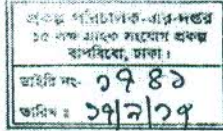 প্রকল্প পরিচালক-এর-দপ্তর
১৫ লক্ষ গ্রাহক সংযোগ প্রকল্প
বাপবিবো, ঢাকা।
ডাইরি নং- ১৭৪১
তারিখ ঃ ১৭/২/১৭